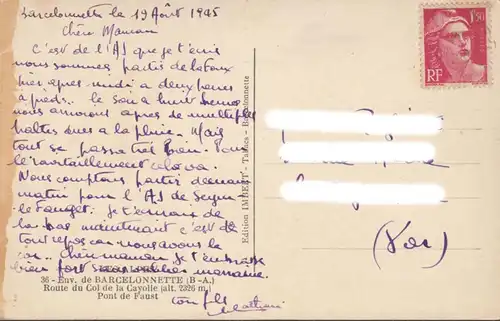 Barcelonnette le 19 Août 1945
Chère Maman
C'est de l'AJ que je t'écris
nous sommes partis de la Foux
hier après midi a deux heures
a pieds.. le soir a huit heures
nous arrivons après de multiples
haltes dues a la pluie. Mais
tout se passa très bien. Pour
le ravitaillement cela va.
Nous comptons partir demain
matin pour l'AJ de Seyne
le
la bas maintenant c'est de
tout repos car nous avons le
car.. Chère maman je t'embrasse
bien fort sans oublier marraine.
ton fils
36 - Env. de BARCELONNETTE (B.-A.)
Route du Col de la Cayolle (alt. 2326 m.)
Pont de Faust
Edition IMBERT - Tabacs - Barcelonnette
1F50
RF
(Var)